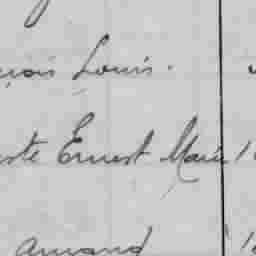 çois Louis.
uste Ernest Marie 1
Armand 1